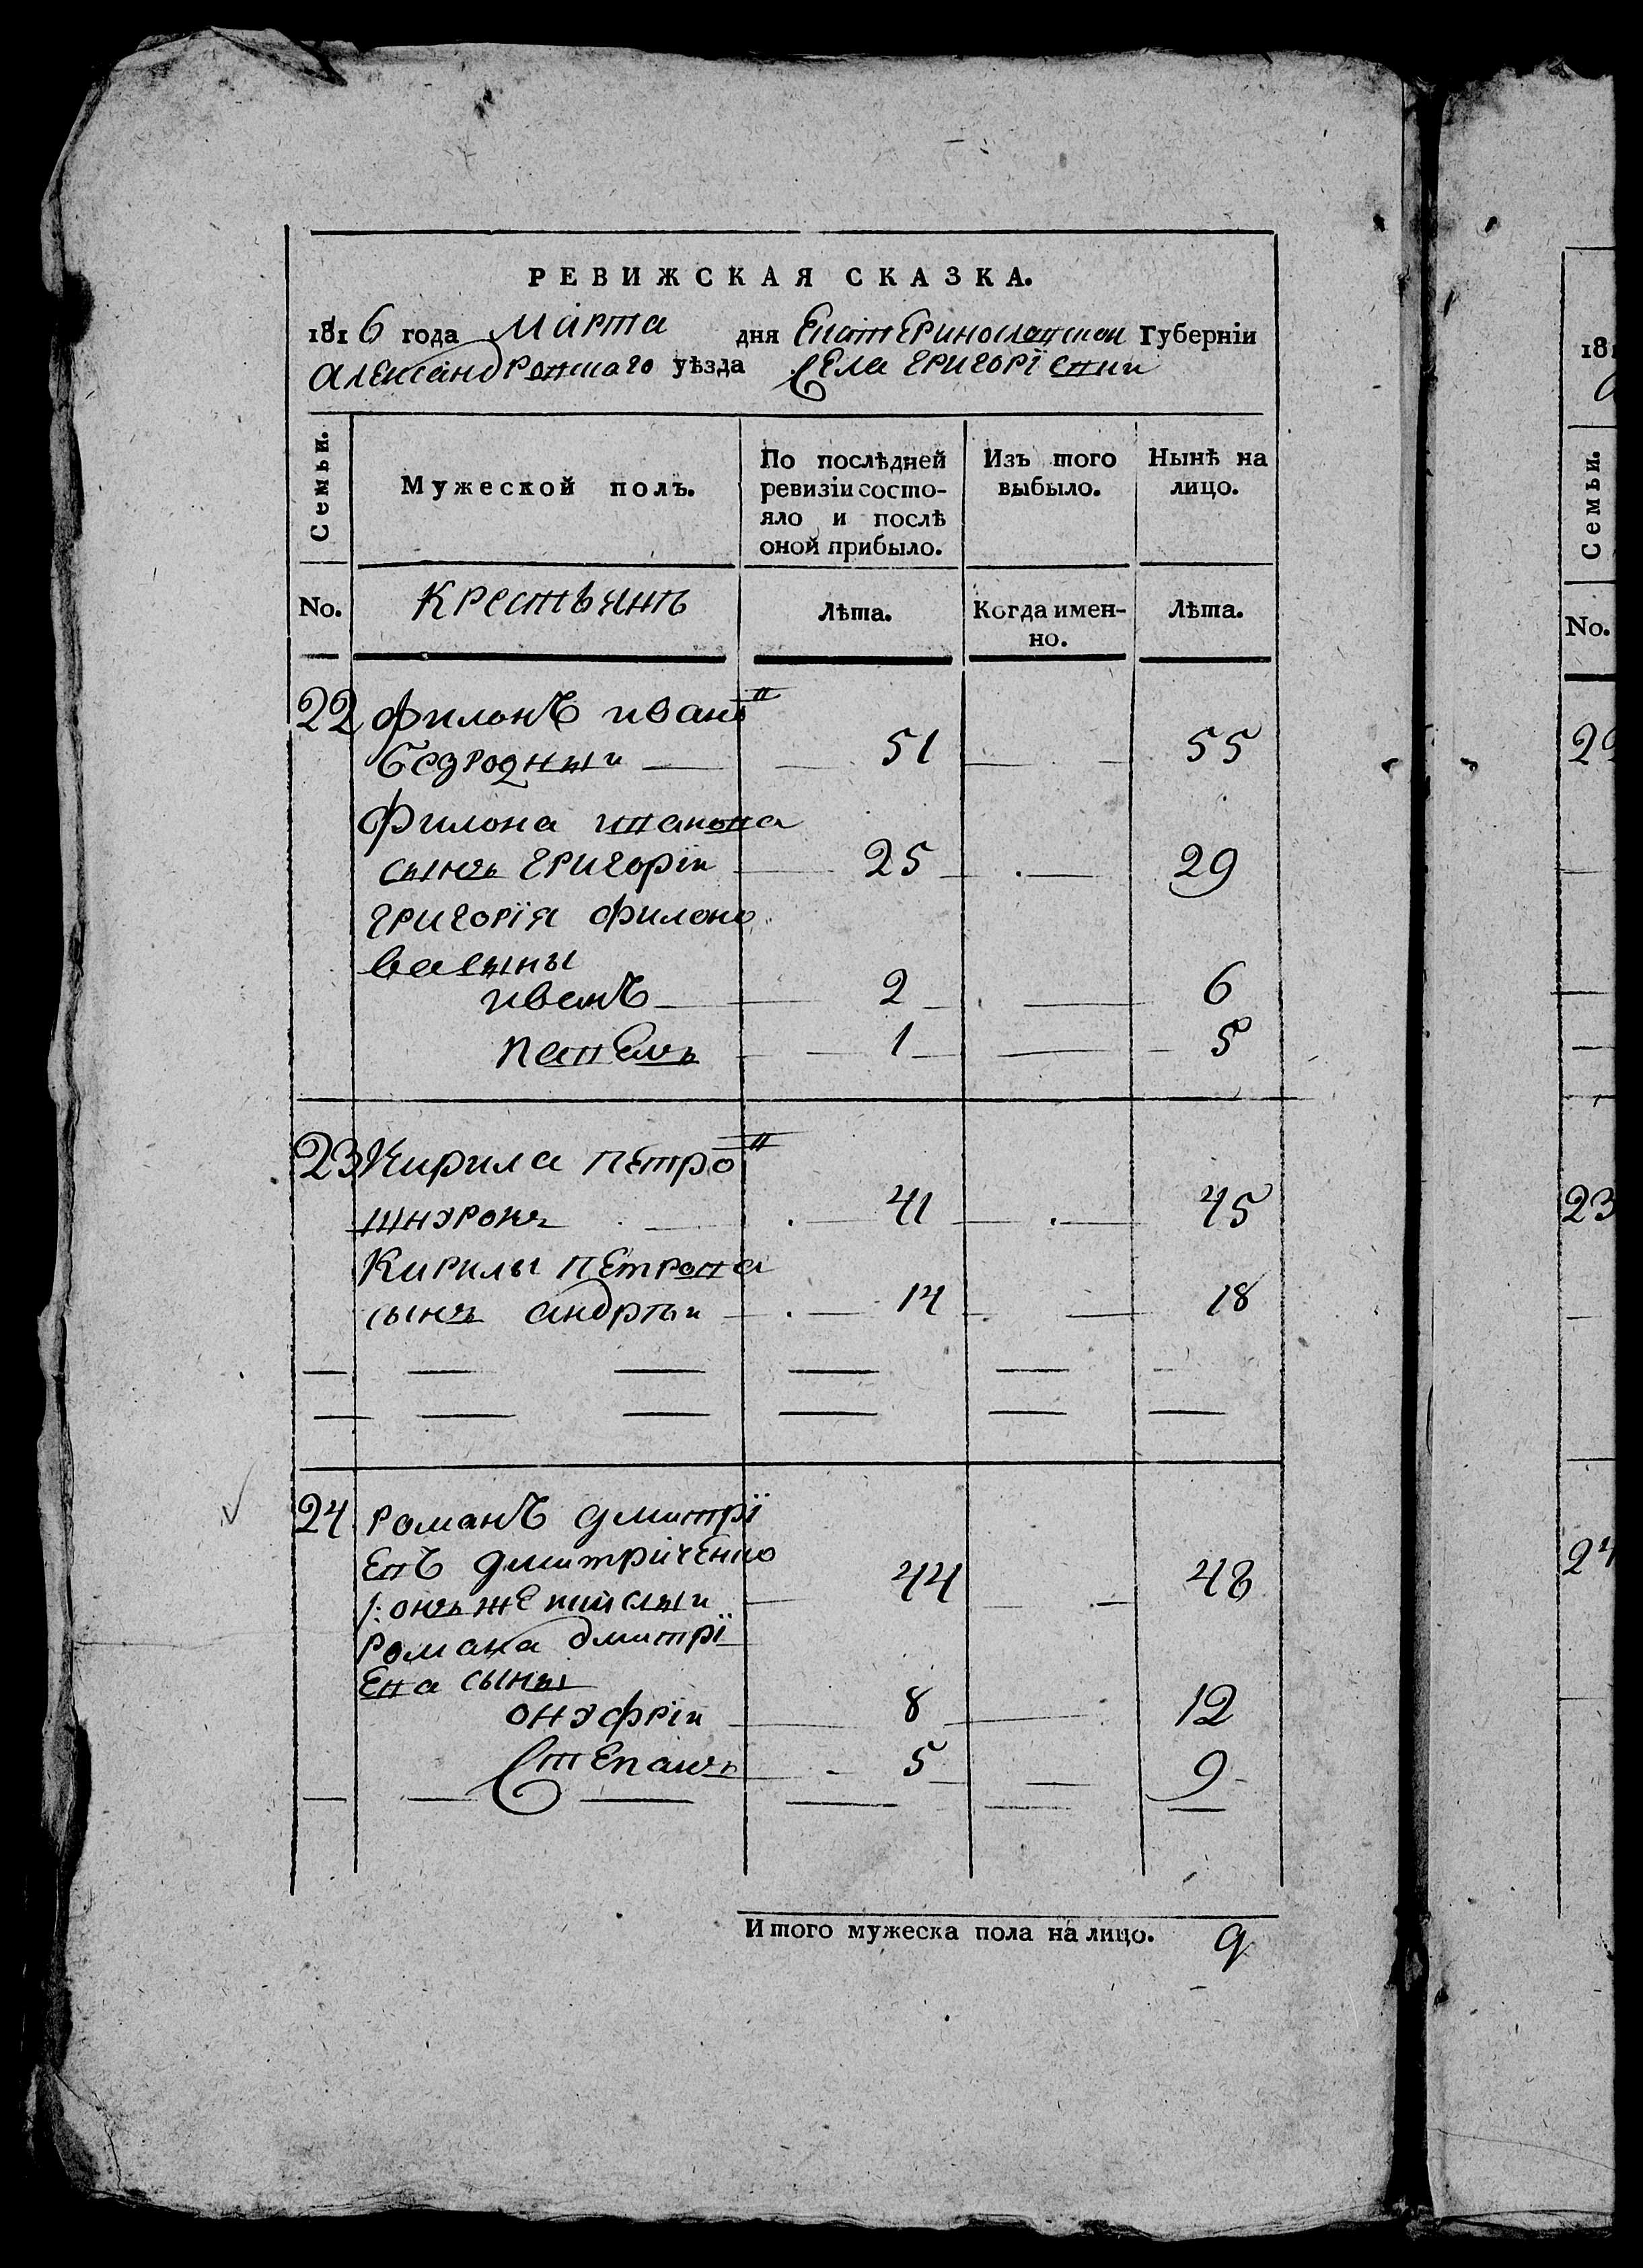 РЕВИЖСКАЯ СКАЗКА.
1816 года Марта дня Екатеринославской Губернiи
Александровскаго уѣзда Села Григорiевки
Семьи. Мужеской полъ. По послѣдней ревизiи состояло и послѣ оной прибыло. Изъ того выбыло. Нынѣ на лицо.
No. Крестьянъ Лѣта. Когда именно. Лѣта.
22 Филонъ ивановъ
безродный 51 55
Филона иванова
сынъ григорiи 25 29
григорiя филоно
ва сыны
иванъ 2 6
павелъ 1 5
23 Кирила петровъ
41 45
Кирилы петрова
сынъ андрѣи 14 18
24 романъ дмитрi
евъ дмитриченко 44 48
/: онъ же
романа дмитрi
ева сыны
онуфрiи 8 12
Степанъ 5 9
Итого мужеска пола на лицо. 9
181
Семьи.
No.
2
23
24